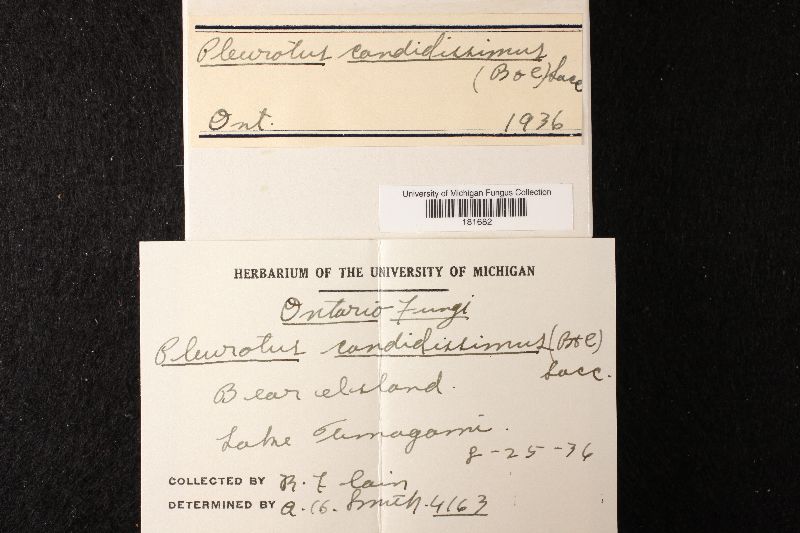 Pleurotus candidissimus
(B & C) Sacc
Ont. 1936
University of Michigan Fungus Collection
181682
HERBARIUM OF THE UNIVERSITY OF MICHIGAN
Ontario Fungi
Pleurotus candidissimus (B & C)
Sacc.
Bear Island.
Lake Timagami.
8-25-36
COLLECTED BY R. F. Cain
DETERMINED BY A. H. Smith. 4163